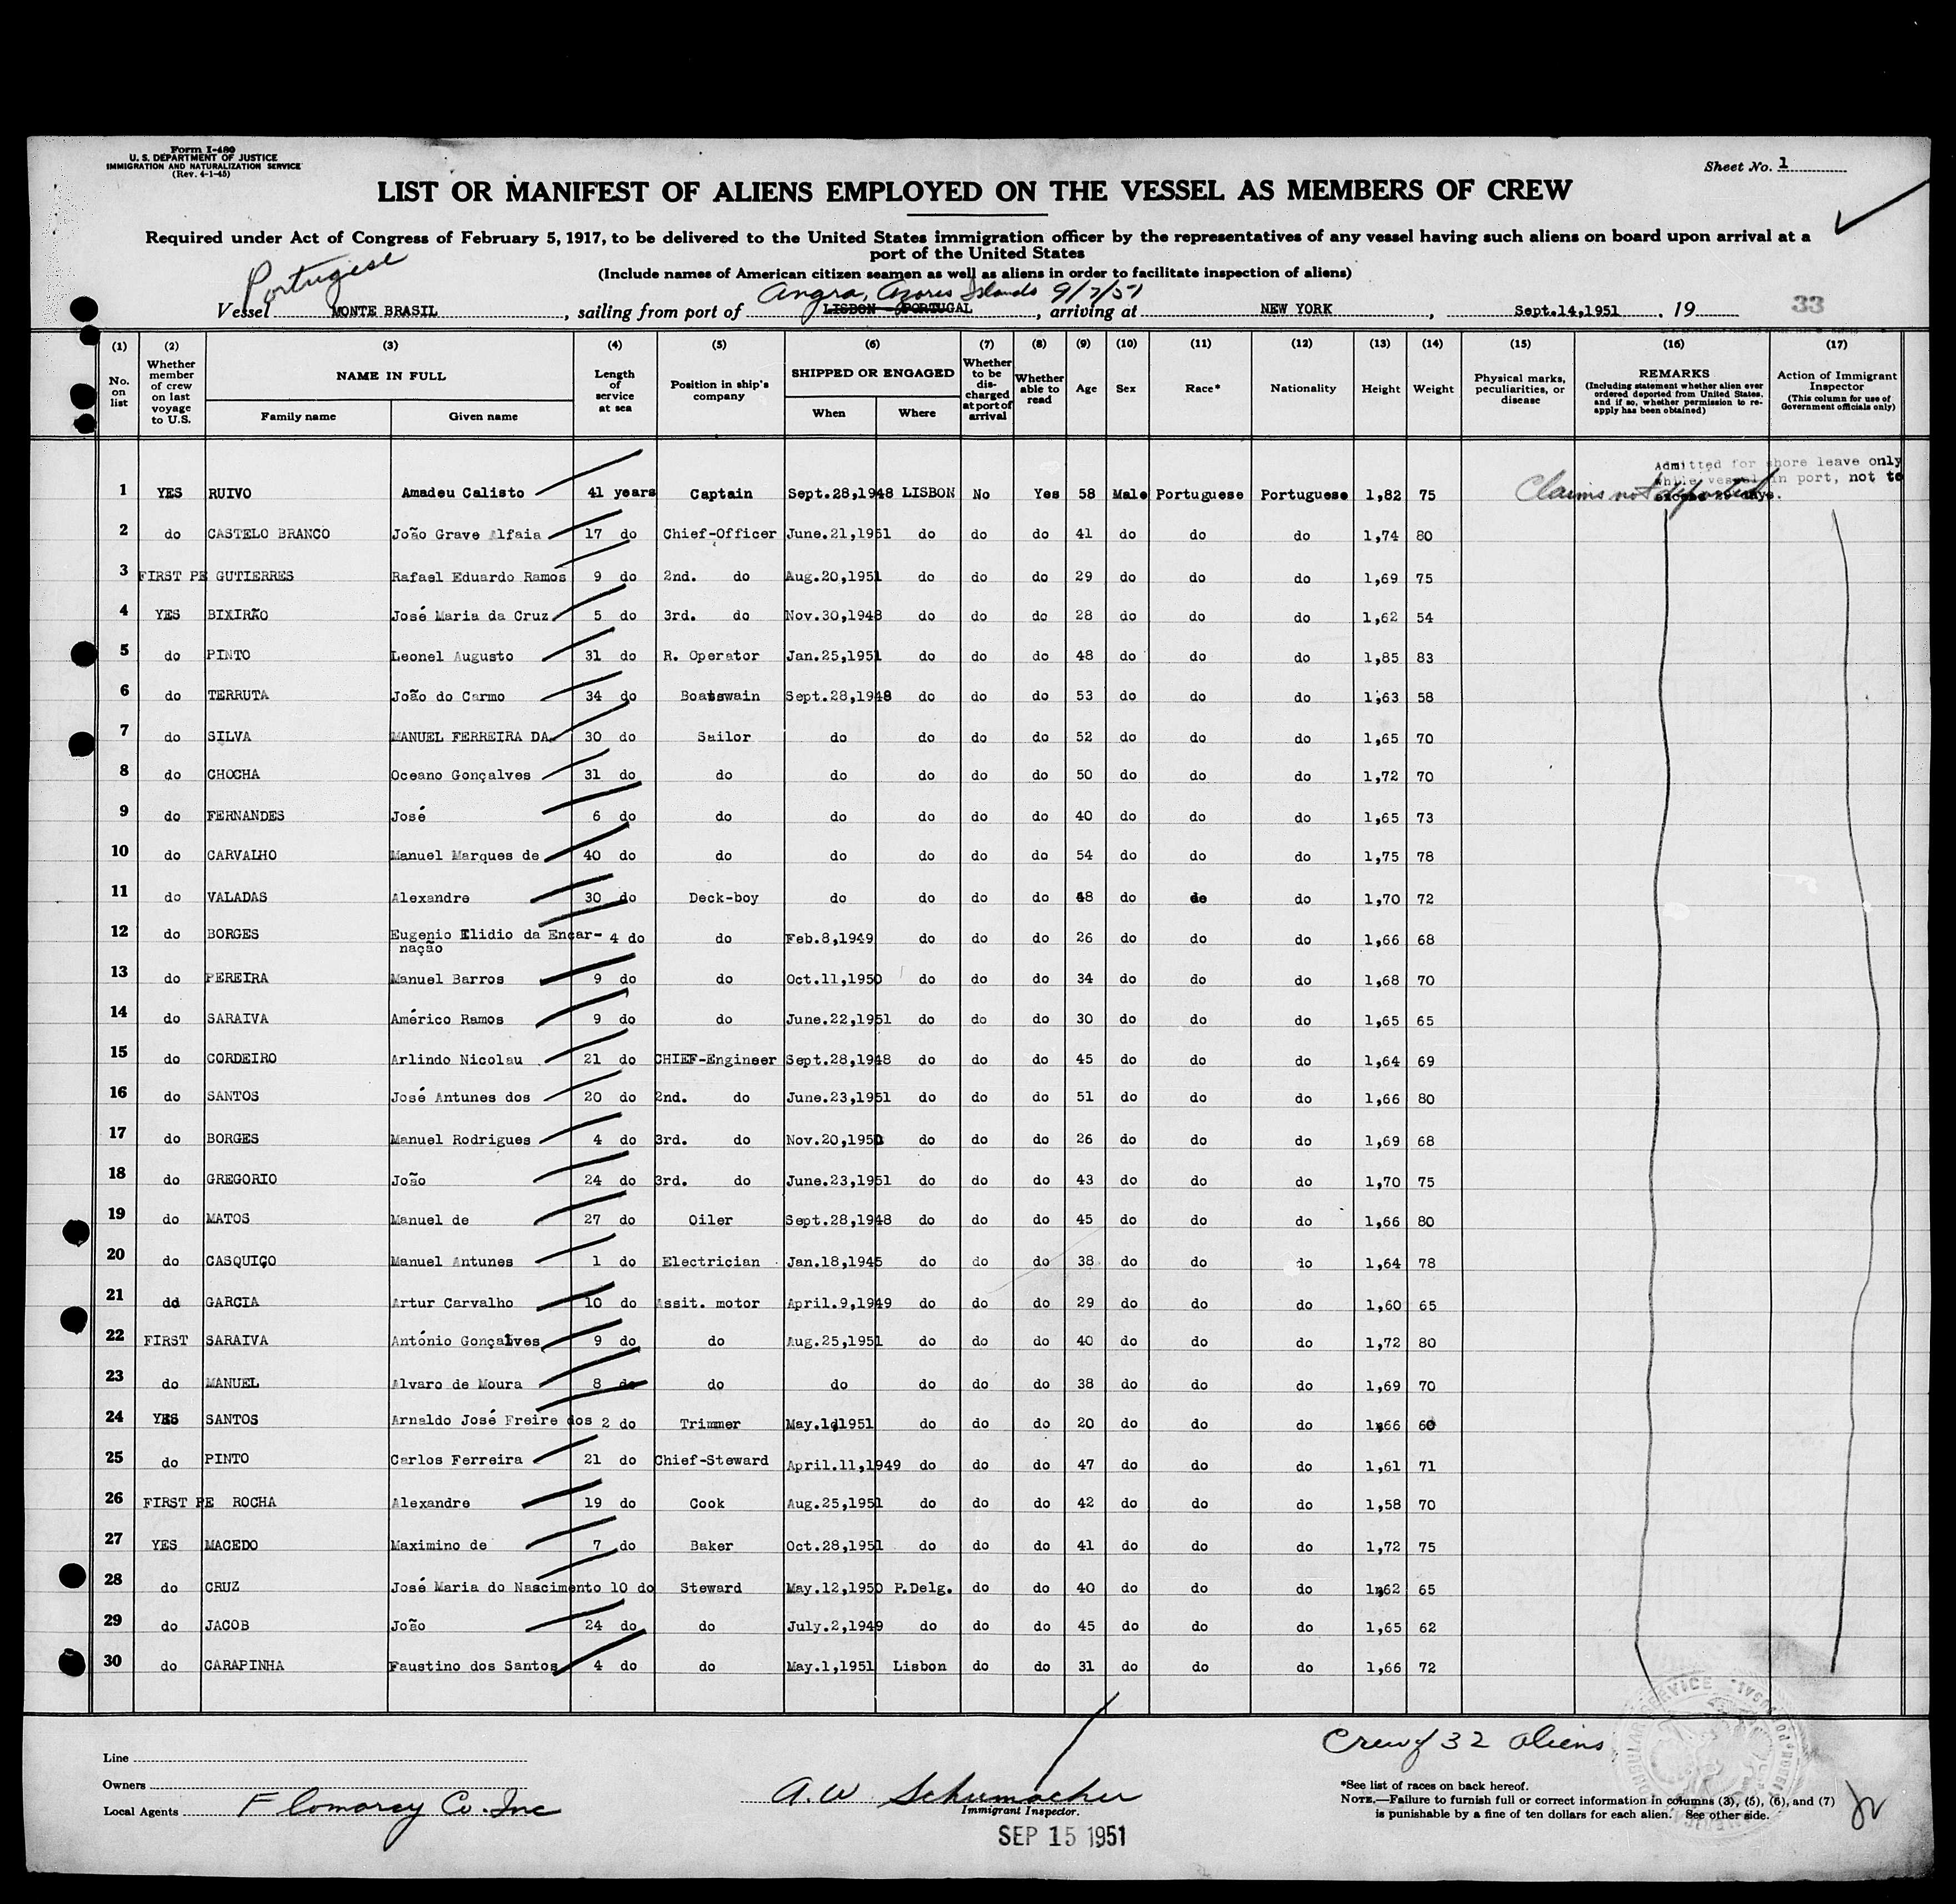 Form I-480
U. S. DEPARTMENT OF JUSTICE
IMMIGRATION AND NATURALIZATION SERVICE
(Rev. 4-1-45)
Sheet No. 1
LIST OR MANIFEST OF ALIENS EMPLOYED ON THE VESSEL AS MEMBERS OF CREW
Required under Act of Congress of February 5, 1917, to be delivered to the United States immigration officer by the representatives of any vessel having such aliens on board upon arrival at a
port of the United States
(Include names of American citizen seamen as well as aliens in order to facilitate inspection of aliens)
Portugese
Angra, Azores Islands 9/7/51
Vessel MONTE BRASIL, sailing from port of LISBON - PORTUGAL, arriving at NEW YORK, Sept.14,1951. 19 33
(1) (2) (3) (4) (5) (6) (7) (8) (9) (10) (11) (12) (13) (14) (15) (16) (17)
No. on list
Whether member of crew on last voyage to U.S.
NAME IN FULL
Family name Given name
Length of service at sea
Position in ship's company
SHIPPED OR ENGAGED
When Where
Whether to be discharged at port of arrival
Whether able to read
Age Sex Race* Nationality Height Weight
Physical marks, peculiarities, or disease
REMARKS
(Including statement whether alien ever ordered deported from United States, and if so, whether permission to re-apply has been obtained)
Action of Immigrant Inspector
(This column for use of Government officials only)
Admitted for shore leave only
while vessel in port, not to
exceed 29 days.
Claims not deported
1 YES RUIVO Amadeu Calisto 41 years Captain Sept.28,1948 LISBON No Yes 58 Male Portuguese Portuguese 1,82 75
2 do CASTELO BRANCO João Grave Alfaia 17 do Chief-Officer June.21,1951 do do do 41 do do do 1,74 80
3 FIRST PE GUTIERRES Rafael Eduardo Ramos 9 do 2nd. do Aug.20,1951 do do do 29 do do do 1,69 75
4 YES BIXIRÃO José Maria da Cruz 5 do 3rd. do Nov.30,1948 do do do 28 do do do 1,62 54
5 do PINTO Leonel Augusto 31 do R. Operator Jan.25,1951 do do do 48 do do do 1,85 83
6 do TERRUTA João do Carmo 34 do Boatswain Sept.28,1948 do do do 53 do do do 1,63 58
7 do SILVA MANUEL FERREIRA DA 30 do Sailor do do do do 52 do do do 1,65 70
8 do CHOCHA Oceano Gonçalves 31 do do do do do do 50 do do do 1,72 70
9 do FERNANDES José 6 do do do do do do 40 do do do 1,65 73
10 do CARVALHO Manuel Marques de 40 do do do do do do 54 do do do 1,75 78
11 do VALADAS Alexandre 30 do Deck-boy do do do do 48 do do do 1,70 72
12 do BORGES Eugenio Elidio da Encar- 4 do do Feb.8,1949 do do do 26 do do do 1,66 68
nação
13 do PEREIRA Manuel Barros 9 do do Oct.11,1950 do do do 34 do do do 1,68 70
14 do SARAIVA Américo Ramos 9 do do June.22,1951 do do do 30 do do do 1,65 65
15 do CORDEIRO Arlindo Nicolau 21 do CHIEF-Engineer Sept.28,1948 do do do 45 do do do 1,64 69
16 do SANTOS José Antunes dos 20 do 2nd. do June.23,1951 do do do 51 do do do 1,66 80
17 do BORGES Manuel Rodrigues 4 do 3rd. do Nov.20,1950 do do do 26 do do do 1,69 68
18 do GREGORIO João 24 do 3rd. do June.23,1951 do do do 43 do do do 1,70 75
19 do MATOS Manuel de 27 do Oiler Sept.28,1948 do do do 45 do do do 1,66 80
20 do CASQUIÇO Manuel Antunes 1 do Electrician Jan.18,1945 do do do 38 do do do 1,64 78
21 dd GARCIA Artur Carvalho 10 do Assit. motor April.9,1949 do do do 29 do do do 1,60 65
22 FIRST SARAIVA António Gonçalves 9 do do Aug.25,1951 do do do 40 do do do 1,72 80
23 do MANUEL Alvaro de Moura 8 do do do do do do 38 do do do 1,69 70
24 YES SANTOS Arnaldo José Freire dos 2 do Trimmer May.1,1951 do do do 20 do do do 1,66 60
25 do PINTO Carlos Ferreira 21 do Chief-Steward April.11,1949 do do do 47 do do do 1,61 71
26 FIRST PE ROCHA Alexandre 19 do Cook Aug.25,1951 do do do 42 do do do 1,58 70
27 YES MACEDO Maximino de 7 do Baker Oct.28,1951 do do do 41 do do do 1,72 75
28 do CRUZ José Maria do Nascimento 10 do Steward May.12,1950 P.Delg. do do 40 do do do 1,62 65
29 do JACOB João 24 do do July.2,1949 do do do 45 do do do 1,65 62
30 do CARAPINHA Faustino dos Santos 4 do do May.1,1951 Lisbon do do 31 do do do 1,66 72
Crew of 32 aliens
Line
Owners
Local Agents F Lomarcy Co. Inc
A. W. Schumacher
Immigrant Inspector.
SEP 15 1951
*See list of races on back hereof.
NOTE.—Failure to furnish full or correct information in columns (3), (5), (6), and (7)
is punishable by a fine of ten dollars for each alien. See other side.